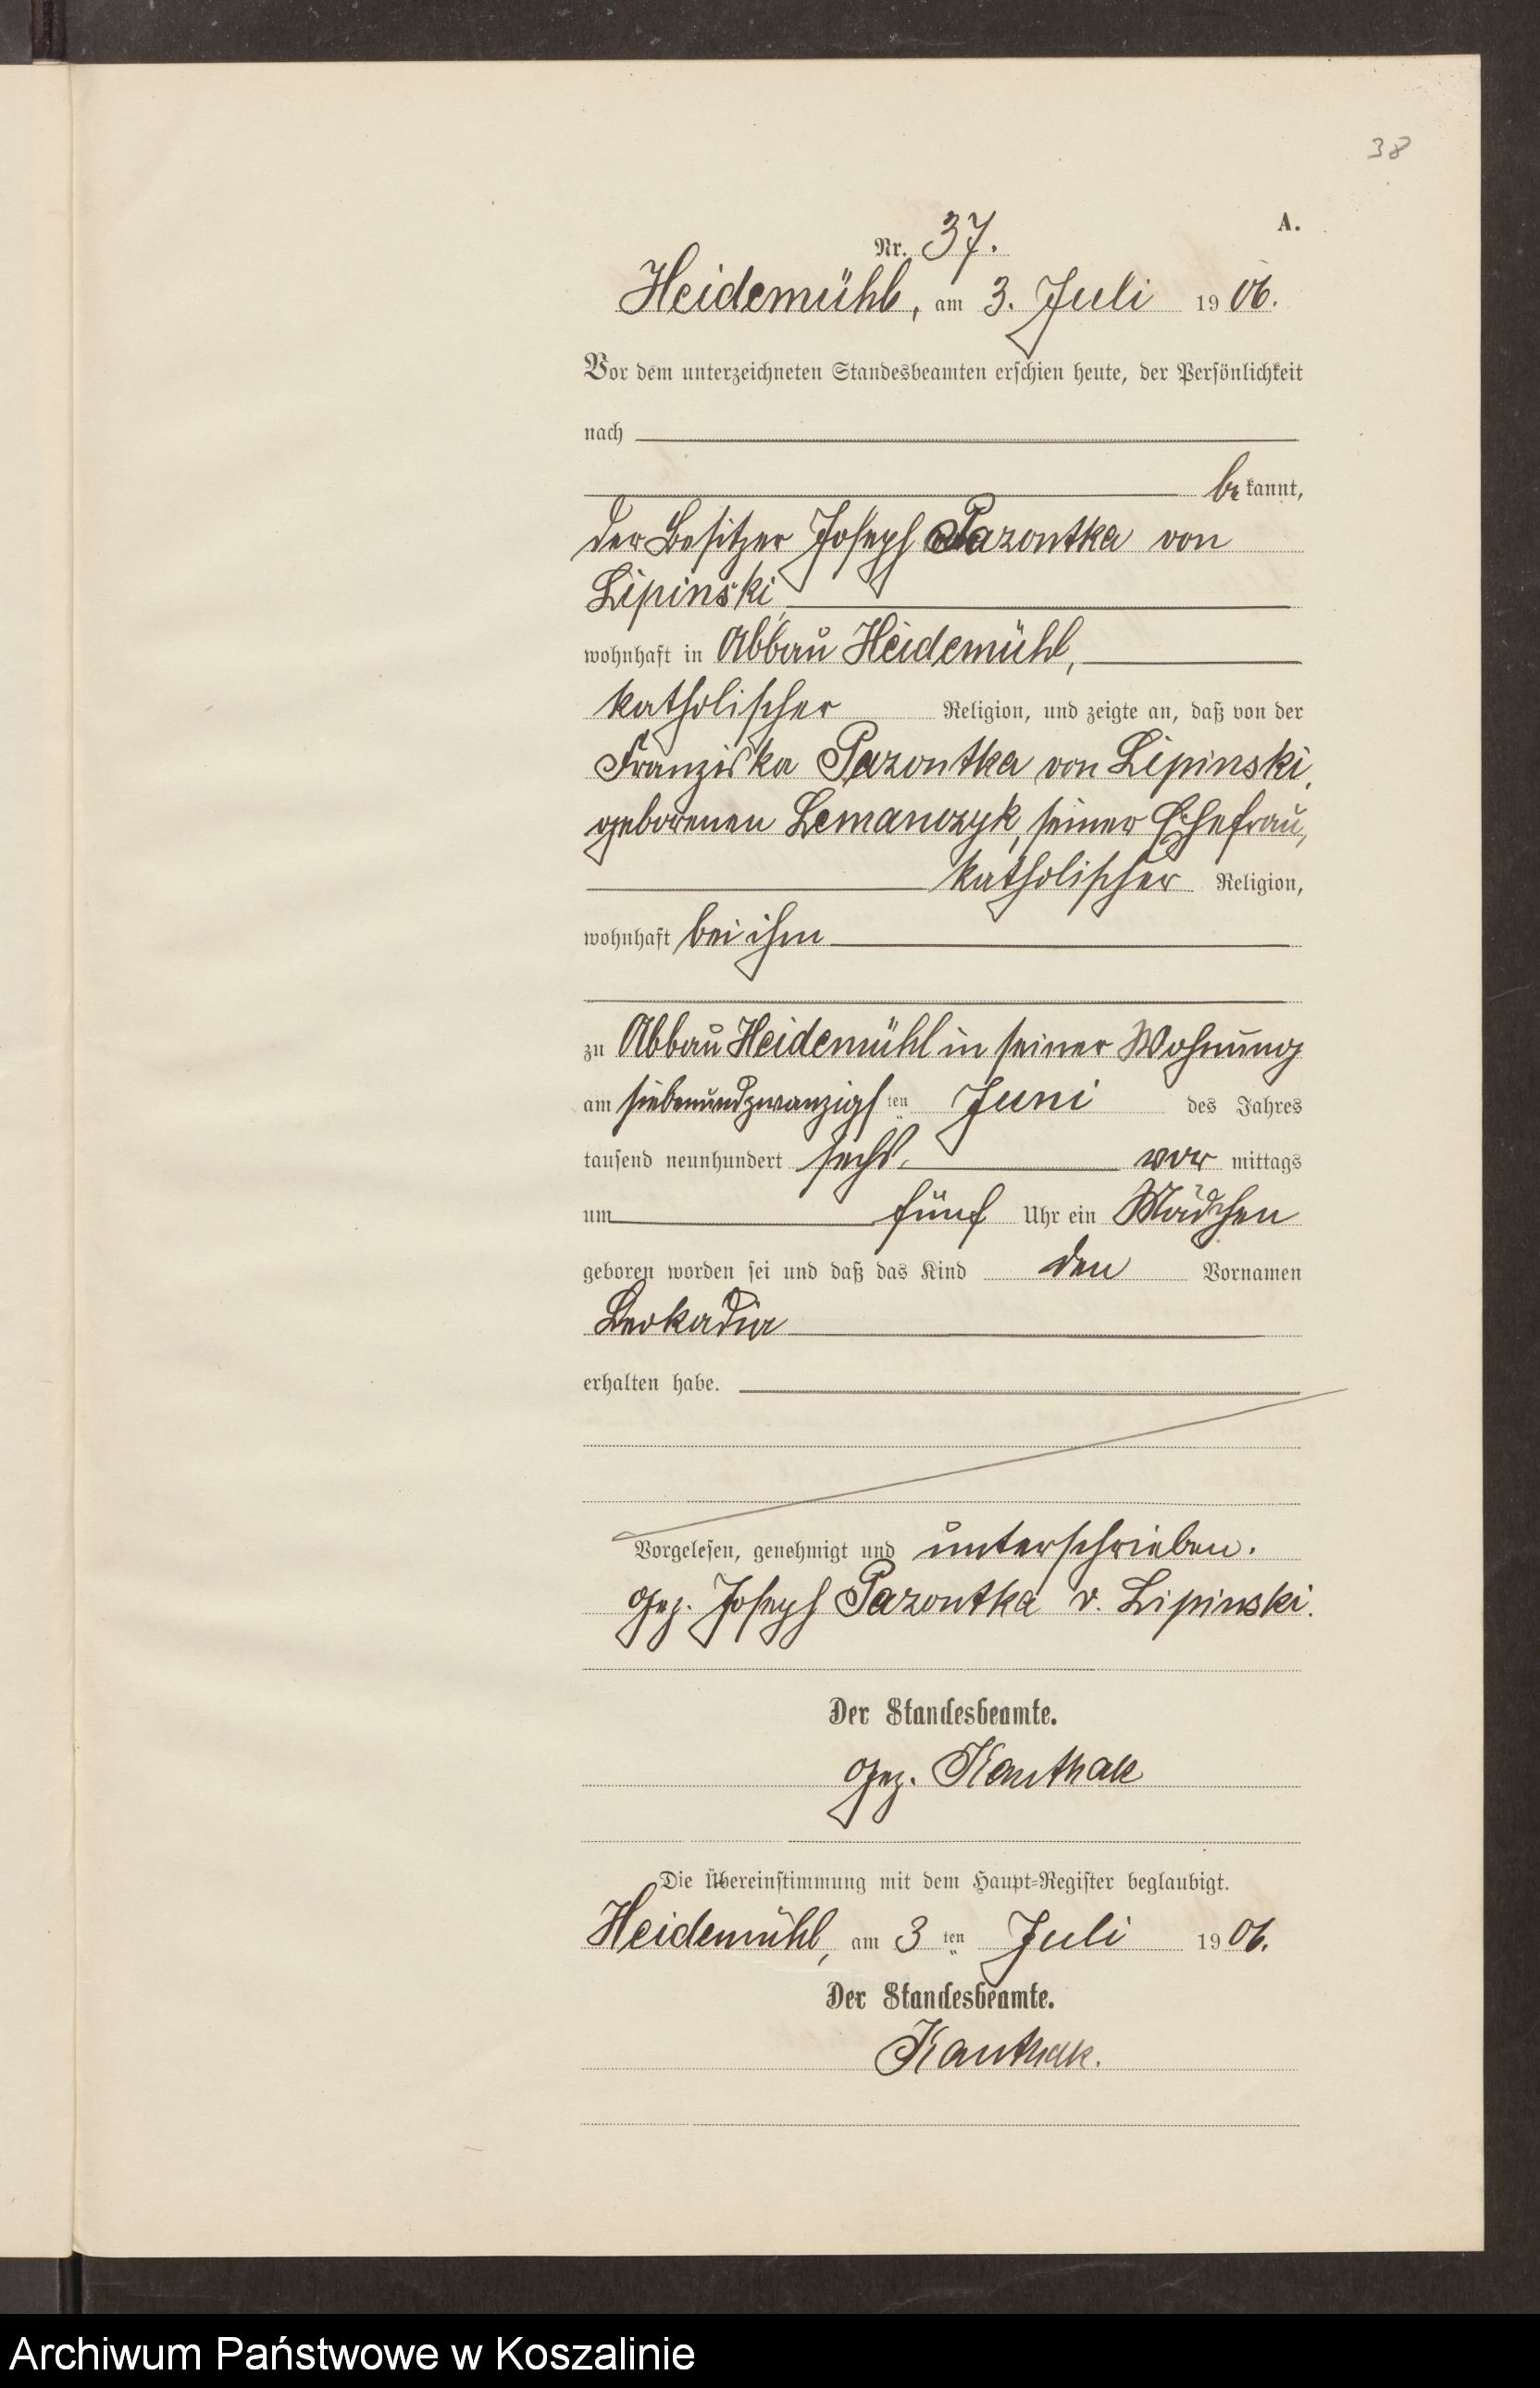 38
A.
Nr. 37.
Heidemühl, am 3. Juli 1906.
Vor dem unterzeichneten Standesbeamten erschien heute, der Persönlichkeit
nach
bekannt,
der Besitzer Joseph Pazontka von
Lipinski,
wohnhaft in Abbau Heidemühl,
katholischer Religion, und zeigte an, daß von der
Franziska Pazontka von Lipinski,
geborenen Lemanczyk, seiner Ehefrau,
katholischer Religion,
wohnhaft bei ihm
zu Abbau Heidemühl in seiner Wohnung
am siebenundzwanzigsten Juni des Jahres
tausend neunhundert sechs, vor mittags
um fünf Uhr ein Mädchen
geboren worden sei und daß das Kind den Vornamen
Leokadia
erhalten habe.
Vorgelesen, genehmigt und unterschrieben.
gez. Joseph Pazontka v. Lipinski.
Der Standesbeamte.
gez. Kauthak
Die Übereinstimmung mit dem Haupt-Register beglaubigt.
Heidemühl, am 3ten Juli 1906.
Der Standesbeamte.
Kauthak.
Archiwum Państwowe w Koszalinie